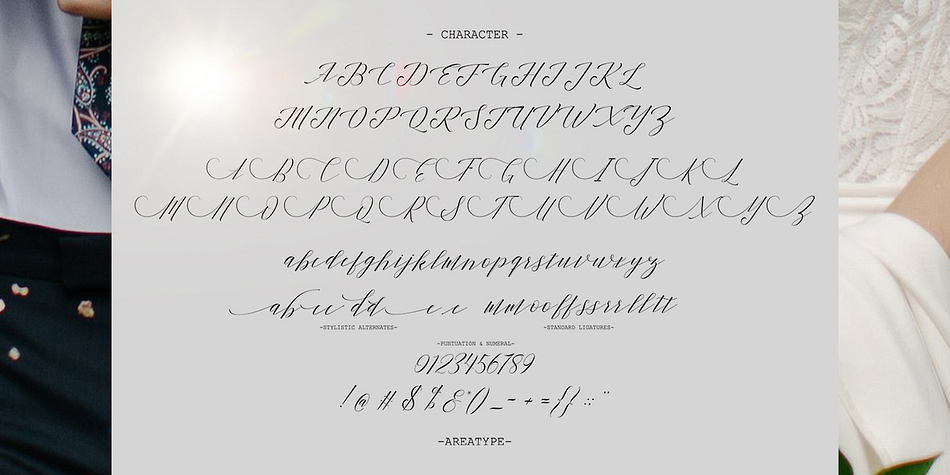 - CHARACTER -
ABCDEFGHIJKL
MNOPQRSTUVWXYZ
ABCDEFGHIJKL
MNOPQRSTUVWXYZ
abcdefghijklmnopqrstuvwxyz
-STYLISTIC ALTERNATES-
-STANDARD LIGATURES-
-PUNTUATION & NUMERAL-
0123456789
!@#$%&*()_-+={}:;"
-AREATYPE-